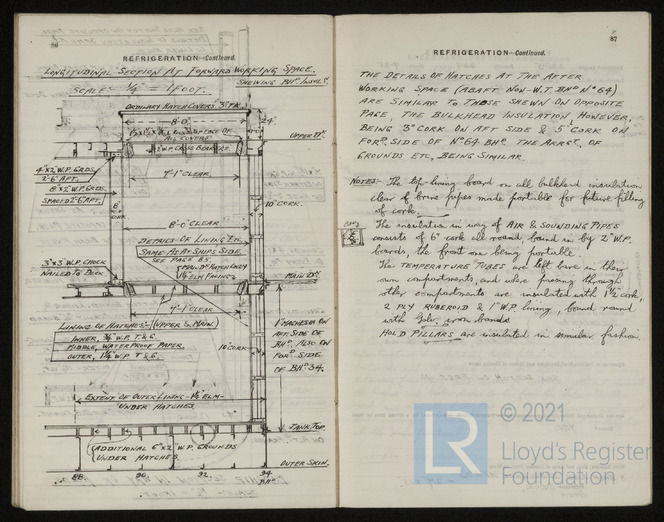 86
REFRIGERATION—Continued.
LONGITUDINAL SECTION AT FORWARD WORKING SPACE.
SHEWING BHD INSULN.
SCALE - ¼" = 1 FOOT.
ORDINARY HATCH COVERS. 3" P.K.
8'-0"
24"
UPPER DK.
7'-1" CLEAR.
4"x2" W.P. GRDS.
2'-6" APT.
8"x2" W.P. GRDS.
SPACED 2'-6" APT.
8"
CORK
10" CORK.
8'-0" CLEAR
DETAILS OF LINING ETC.
SAME AS AT SHIPS SIDE.
SEE PAGE 85.
3"x3" W.P. CHOCK
NAILED TO DECK
MAIN DK HATCH ONLY
½" ELM FACING
MAIN DK.
7'-1" CLEAR
LINING OF HATCHES:- (UPPER & MAIN)
INNER, ¾" W.P. T & G.
MIDDLE, WATERPROOF PAPER.
OUTER, 1¼" W.P. T & G.
10" CORK
1" MAGNESIA ON
AFT SIDE OF
BHD. ALSO ON
FORD SIDE
OF BHD 34.
EXTENT OF OUTER LINING - 1½" ELM -
UNDER HATCHES.
TANK TOP.
ADDITIONAL 6"x2" W.P. GROUNDS
UNDER HATCHES.
OUTER SKIN.
88
90
92
94
BHD
87
REFRIGERATION—Continued.
THE DETAILS OF HATCHES AT THE AFTER
WORKING SPACE (ABAFT NON-W.T. BHD No 64)
ARE SIMILAR TO THOSE SHEWN ON OPPOSITE
PAGE, THE BULKHEAD INSULATION, HOWEVER,
BEING 3" CORK ON AFT SIDE & 5" CORK ON
FORD SIDE OF No 64 BHD. THE ARRGT. OF
GROUNDS ETC, BEING SIMILAR.
NOTES:- The top lining board on all bulkhead insulation
clear of brine pipes made portable for future filling
of cork.
The insulation in way of AIR & SOUNDING PIPES
consists of 6" cork all round, bound in by 2" W.P.
boards, the front one being portable.
The TEMPERATURE TUBES are left bare in their
own compartments, and where passing through
other compartments are insulated with 1½" cork,
2 PLY RUBEROID & 1" W.P. lining, bound round
with Galv. iron bands.
HOLD PILLARS are insulated in similar fashion.
© 2021
LR
Lloyd's Register
Foundation